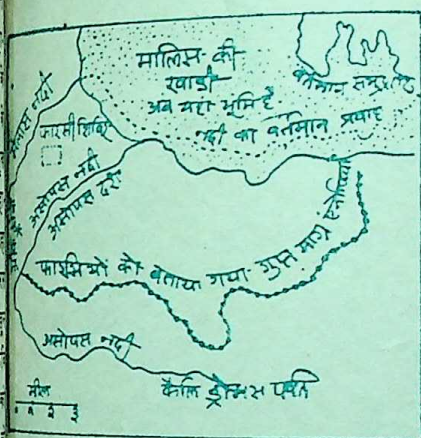 मालिस की
खाड़ी
अब यहां भूमि है
नदी का वर्तमान प्रवाह
वर्तमान समुद्र तट
नदी
फारसी शिविर
असोपस नदी
असोपस दर्रा
फारसियों को बताया गया गुप्त मार्ग
असोपस नदी
कैलिड्रोमस पर्वत
मील
० १ २ ३